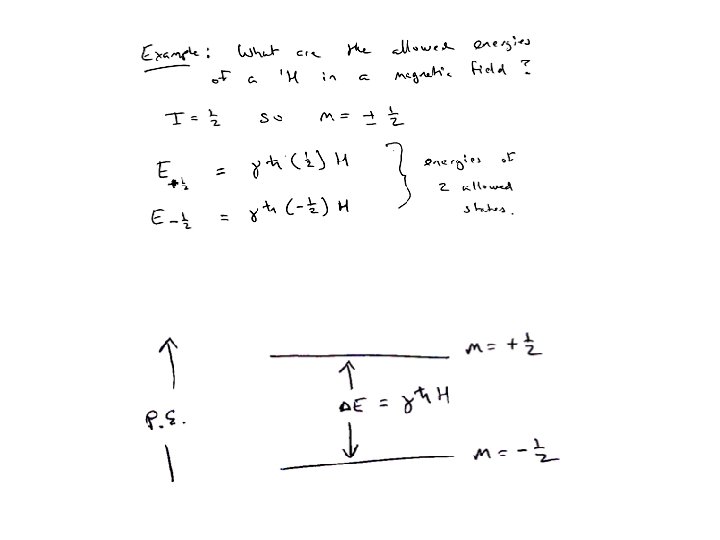 Example: What are the allowed energies
of a ¹H in a magnetic field?
I = ½ so m = ± ½
E+½ = γħ (½) H
E-½ = γħ (-½) H
energies of
2 allowed
states.
m = + ½
ΔE = γħH
P.E.
m = - ½